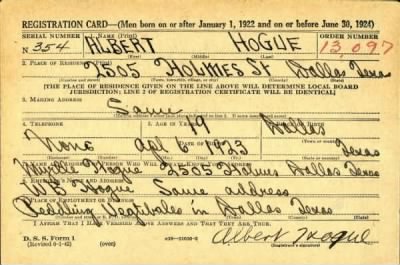 REGISTRATION CARD—(Men born on or after January 1, 1922 and on or before June 30, 1924)
SERIAL NUMBER 1. NAME (Print) ORDER NUMBER
N 354 ALBERT HOGUE 13,097
(First) (Middle) (Last)
2. PLACE OF RESIDENCE (Print)
2505 HOLMES St. Dallas Texas
(Number and street) (Town, township, village, or city) (County) (State)
[THE PLACE OF RESIDENCE GIVEN ON THE LINE ABOVE WILL DETERMINE LOCAL BOARD
JURISDICTION; LINE 2 OF REGISTRATION CERTIFICATE WILL BE IDENTICAL]
3. MAILING ADDRESS
Same
4. TELEPHONE 5. AGE IN YEARS
19 Dallas
None Apl 1923 Texas
Myrtle Hogue 2505 Holmes Dallas Texas
8. EMPLOYER'S NAME AND ADDRESS
Hogue Same address
9. PLACE OF EMPLOYMENT OR BUSINESS
Peddling Vegtibales in Dallas Texas
I AFFIRM THAT I HAVE VERIFIED ABOVE ANSWERS AND THAT THEY ARE TRUE.
D. S. S. Form 1
(Revised 6-1-42) (over)
Albert Hogue
(Registrant's signature)